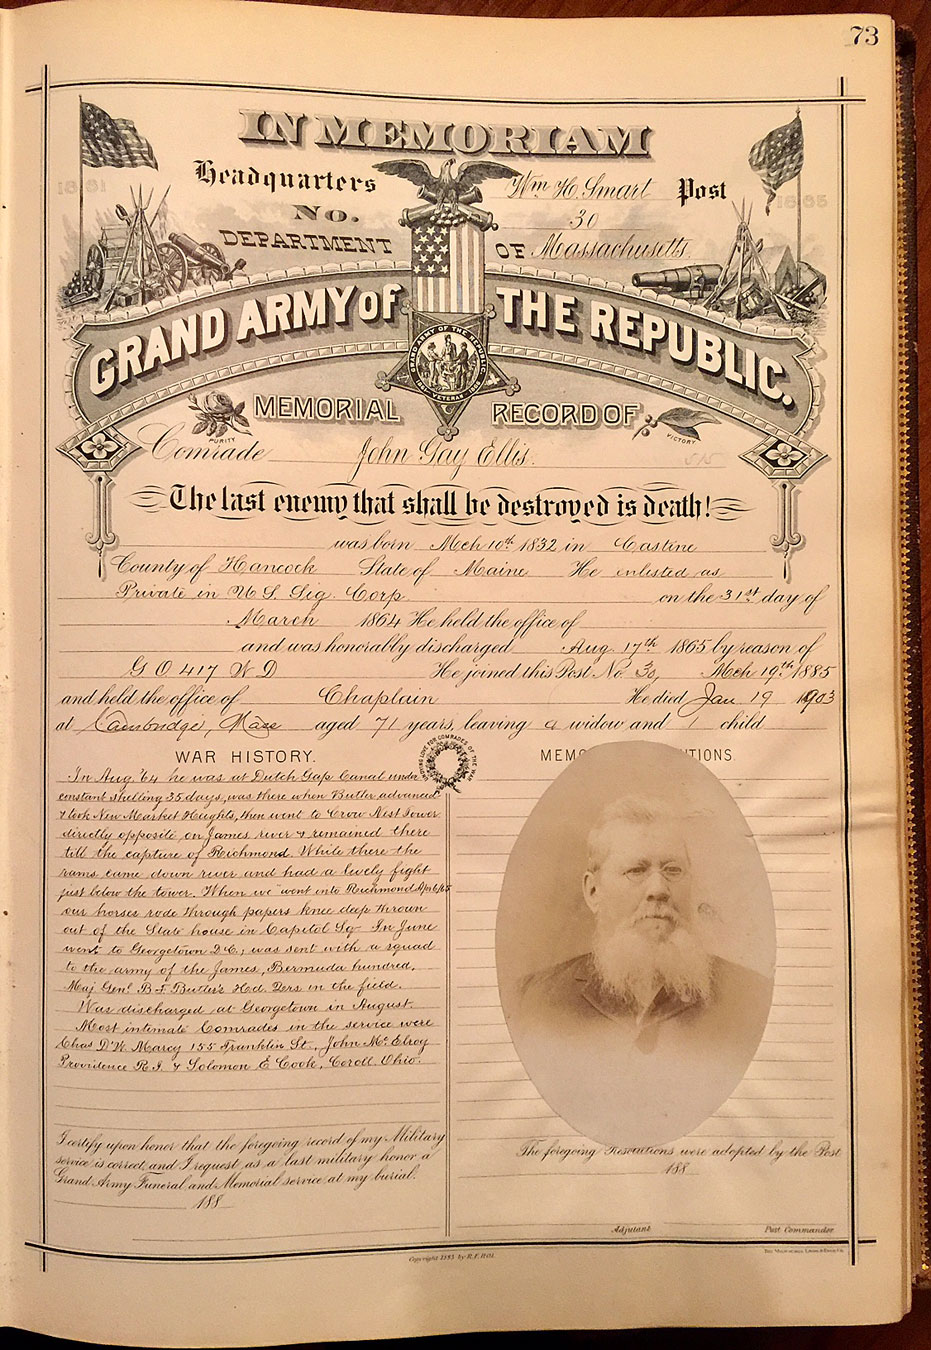 73
IN MEMORIAM
1861
1865
Headquarters Wm H. Smart Post
No. 30
DEPARTMENT OF Massachusetts.
GRAND ARMY OF THE REPUBLIC.
GRAND ARMY OF THE REPUBLIC
VETERAN
MEMORIAL RECORD OF
PURITY
VICTORY
Comrade John Gay Ellis.
The last enemy that shall be destroyed is death!
was born Mch 10th 1832 in Castine
County of Hancock State of Maine He enlisted as
Private in U S Sig. Corp. on the 31st day of
March 1864 He held the office of
and was honorably discharged Aug. 17th 1865 by reason of
G O 417 W D He joined this Post No. 30, Mch 19th 1885
and held the office of Chaplain He died Jan 19 1903
at Cambridge, Mass aged 71 years, leaving a widow and 1 child
WAR HISTORY.
In Aug. '64 he was at Dutch Gap Canal under
constant shelling 35 days, was there when Butler advanced
& took New Market Heights, then went to Crow Nest Tower
directly opposite on James river & remained there
till the capture of Richmond. While there the
rams came down river and had a lively fight
just below the tower. When we went into Richmond
our horses rode through papers knee deep thrown
out of the State house in Capitol Sq. In June
went to Georgetown D.C.; was sent with a squad
to the army of the James, Bermuda hundred,
Maj Genl B F Butler's Hed. Qers in the field.
Was discharged at Georgetown in August.
Most intimate Comrades in the service were
Chas D'W. Marcy 155 Franklin St., John Mc Elroy
Providence R.I. & Solomon E Cook, Coroll. Ohio.
I certify upon honor that the foregoing record of my Military
service is correct, and I request as a last military honor a
Grand Army Funeral, and Memorial service at my burial.
188
MEMO TIONS
The foregoing Resolutions were adopted by the Post
188
Adjutant Post Commander
Copyright 1883 by